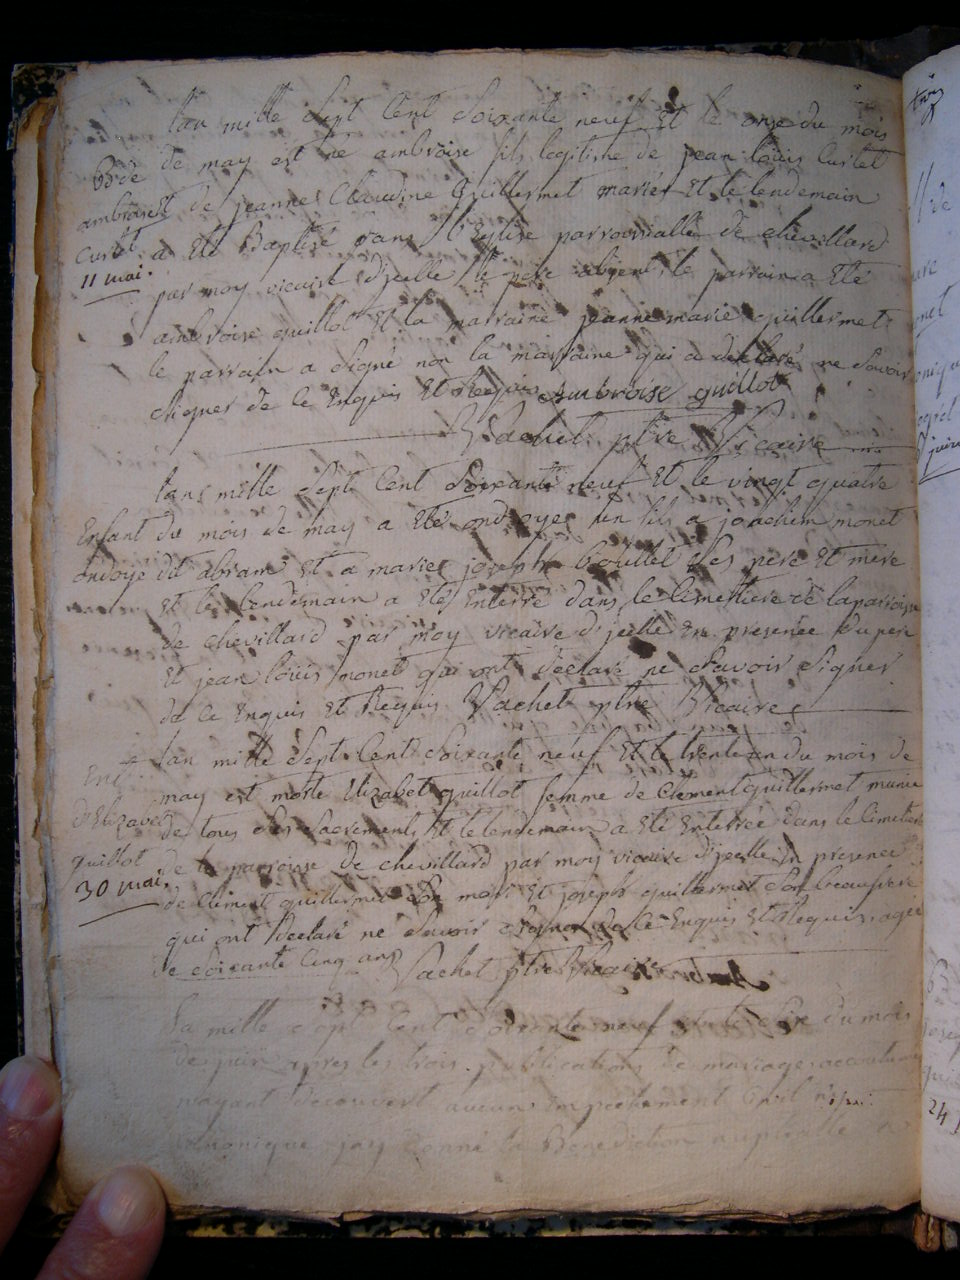 Lan mille Sept Cent Soixante neuf Et le onze du mois
Bme de de may est né ambroise fils legitime de jean loüis Curtet
ambroise Et de jeanne Claudine Guillermet mariés Et le lendemain
Curtet a Eté Baptisé dans l'Eglise parroissialle de chevillard
11 mai. par moy vicaire d'jcelle le pere absent, le parrain a Eté
ambroise guillot Et la marraine jeanne marie guillermet
le parrain a signé non la marraine qui a declaré ne Savoir
signer de Ce Enquis Et Requis Ambroise guillot
Vachet ptre Vicaire
Lan mille Sept Cent Soixante neuf Et le vingt quatre
Enfant du mois de may a Eté ondoyé un fils a joachim monet
ondoyé dit abram Et a marie joseph Coullet Ses pere Et mere
Et le lendemain a Eté Enterré dans le Cimettiere de la paroisse
de chevillard par moy vicaire d'jcelle En presence du pere
Et jean loüis monet qui ont declaré ne Savoir Signer
de Ce Enquis Et Requis Vachet ptre Vicaire
Lan mille Sept Cent Soixante neuf Et le trente un du mois de
Ent. may est morte Elizabet guillot femme de Clement guillermet munie
d'Elizabet de tous Les Sacrements Et le lendemain a Eté Enterrée dans le Cimetiere
guillot de la parroisse de chevillard par moy vicaire d'jcelle En presence
30 mai. de Clement guillermet Son mari Et joseph guillermet Son beaufrere
qui ont declaré ne Savoir Signer de Ce Enquis Et Requis, agée
de Soixante Cinq ans Vachet ptre Vicaire
La mille Sept Cent Soixante neuf Et le Six du mois
de juin apres les trois publications de mariage accoutumées
nayant decouvert aucuns Empechement Civil n'y
Canonique jay donné la Benediction nuptialle a